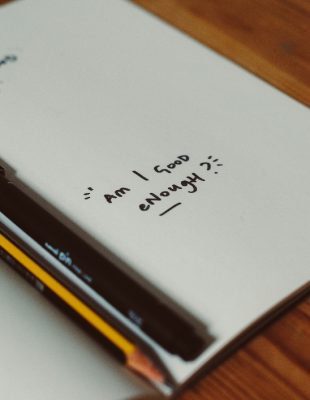 Am I GOOD
eNougH?